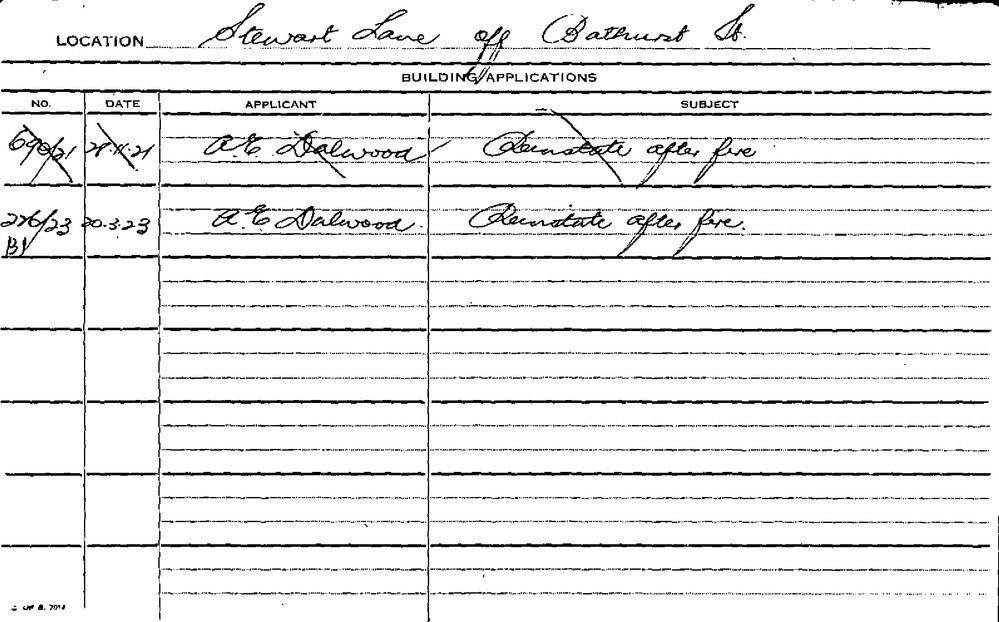 LOCATION Stewart Lane off Bathurst St.
BUILDING APPLICATIONS
NO. DATE APPLICANT SUBJECT
690/21 28.11.21 A.E. Dalwood Reinstate after fire
276/23 20.3.23 A.E. Dalwood. Reinstate after fire.
B1